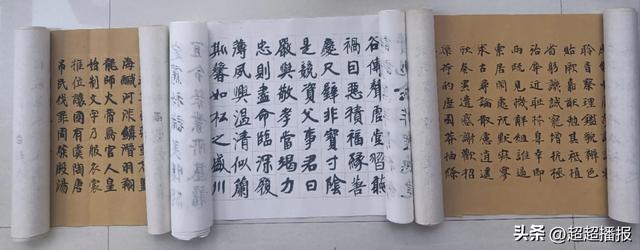 聆音察理鑑貌辨色
貽厥嘉猷勉其祗植
省躬譏誡寵增抗極
殆辱近恥林皋幸即
兩疏見機解組誰逼
索居閒處沉默寂寥
求古尋論散慮逍遙
欣奏累遣慼謝歡招
渠荷的歷園莽抽條
谷傳聲虛堂習聽
禍因惡積福緣善
慶尺璧非寶寸陰
是競資父事君曰
嚴與敬孝當竭力
忠則盡命臨深履
薄夙興溫清似蘭
斯馨如松之盛川
宜令榮業所基籍
海鹹河淡鱗潛羽翔
龍師火帝鳥官人皇
始制文字乃服衣裳
推位讓國有虞陶唐
吊民伐罪周發殷湯
头条 @超超播报